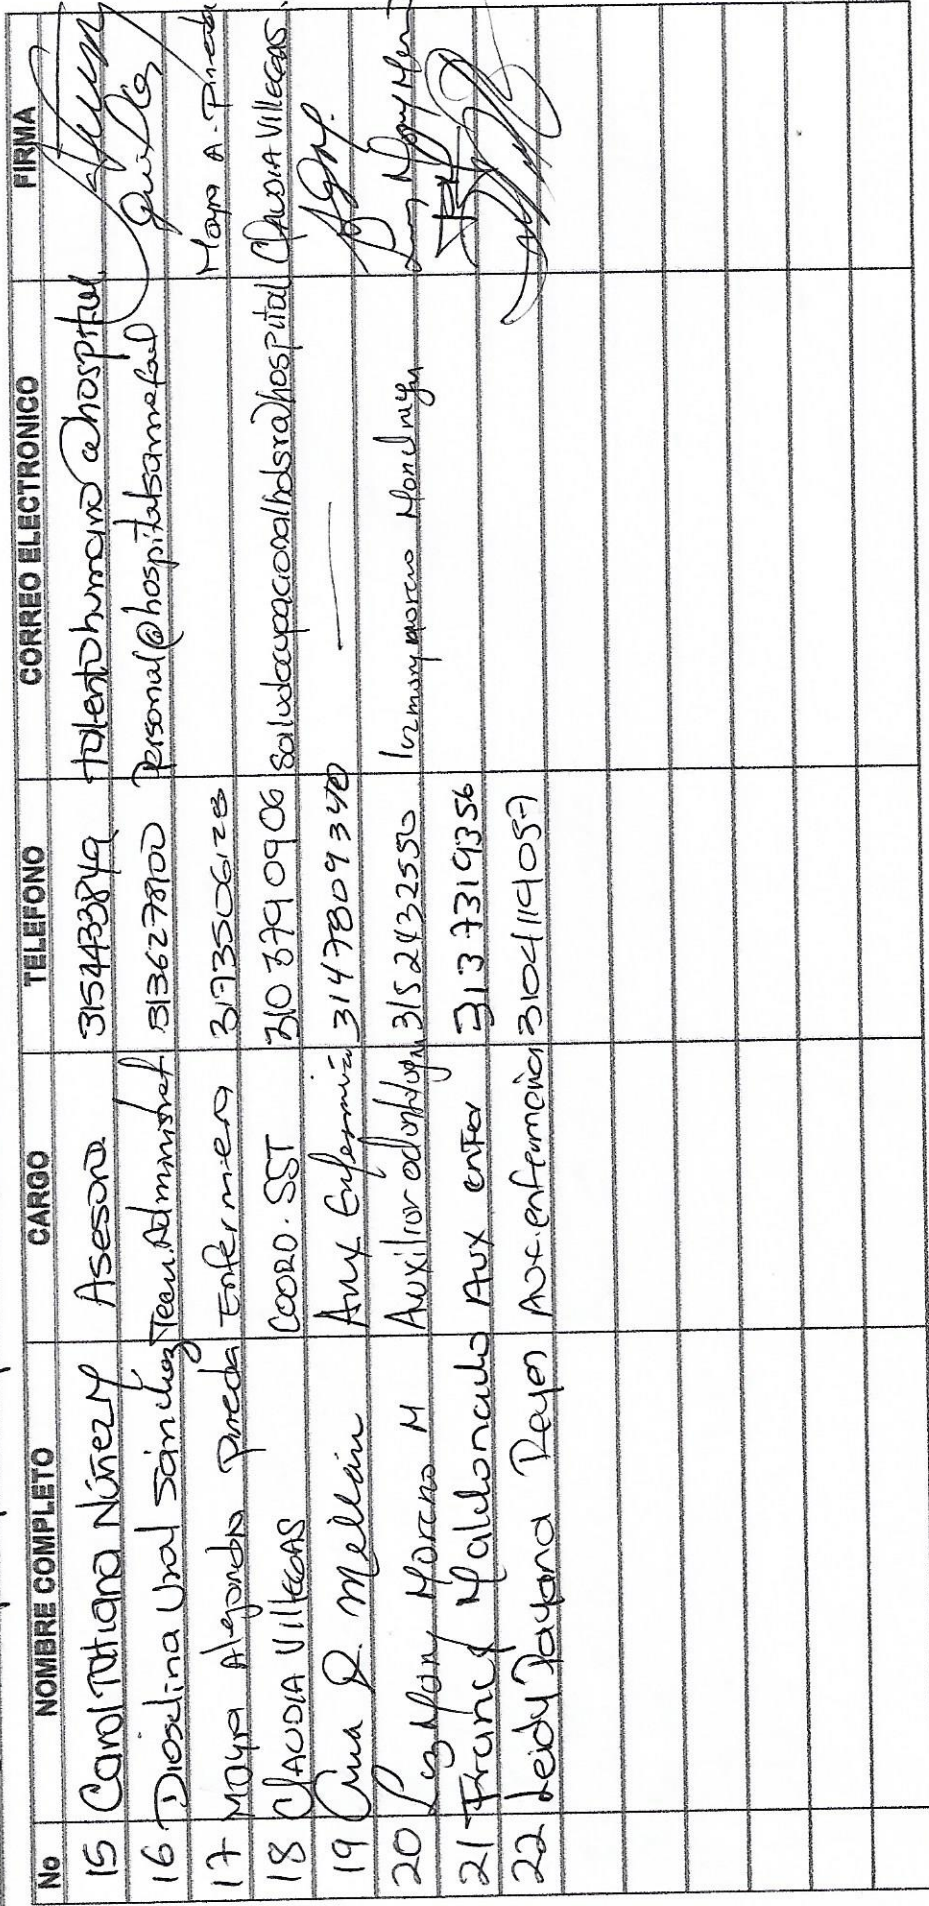 No NOMBRE COMPLETO CARGO TELEFONO CORREO ELECTRONICO FIRMA
15 Carol Tatiana Núñez M Asesora 3154433849 talentohumano@hospital
16 Dioselina Usal Sánchez Tecn. Administrat 3136278100 personal@hospitalsanrafael
17 Mayra Alejandra Pineda Enfermera 3173506128 Mayra A. Pineda
18 Claudia Villegas Coord. SST 310 879 09 06 saludocupacionalhdsra@hospital Claudia Villegas
19 Ana R. Mellán Aux Enfermería 3147809340 —
20 Luz Mary Moreno M Auxiliar odontologia 3152432550 luzmarymoreno Luz Mary Mor
21 Francy Maldonado Aux enfer 3137319356
22 Leidy Dayana Reyes Aux. enfermeria 3104119057